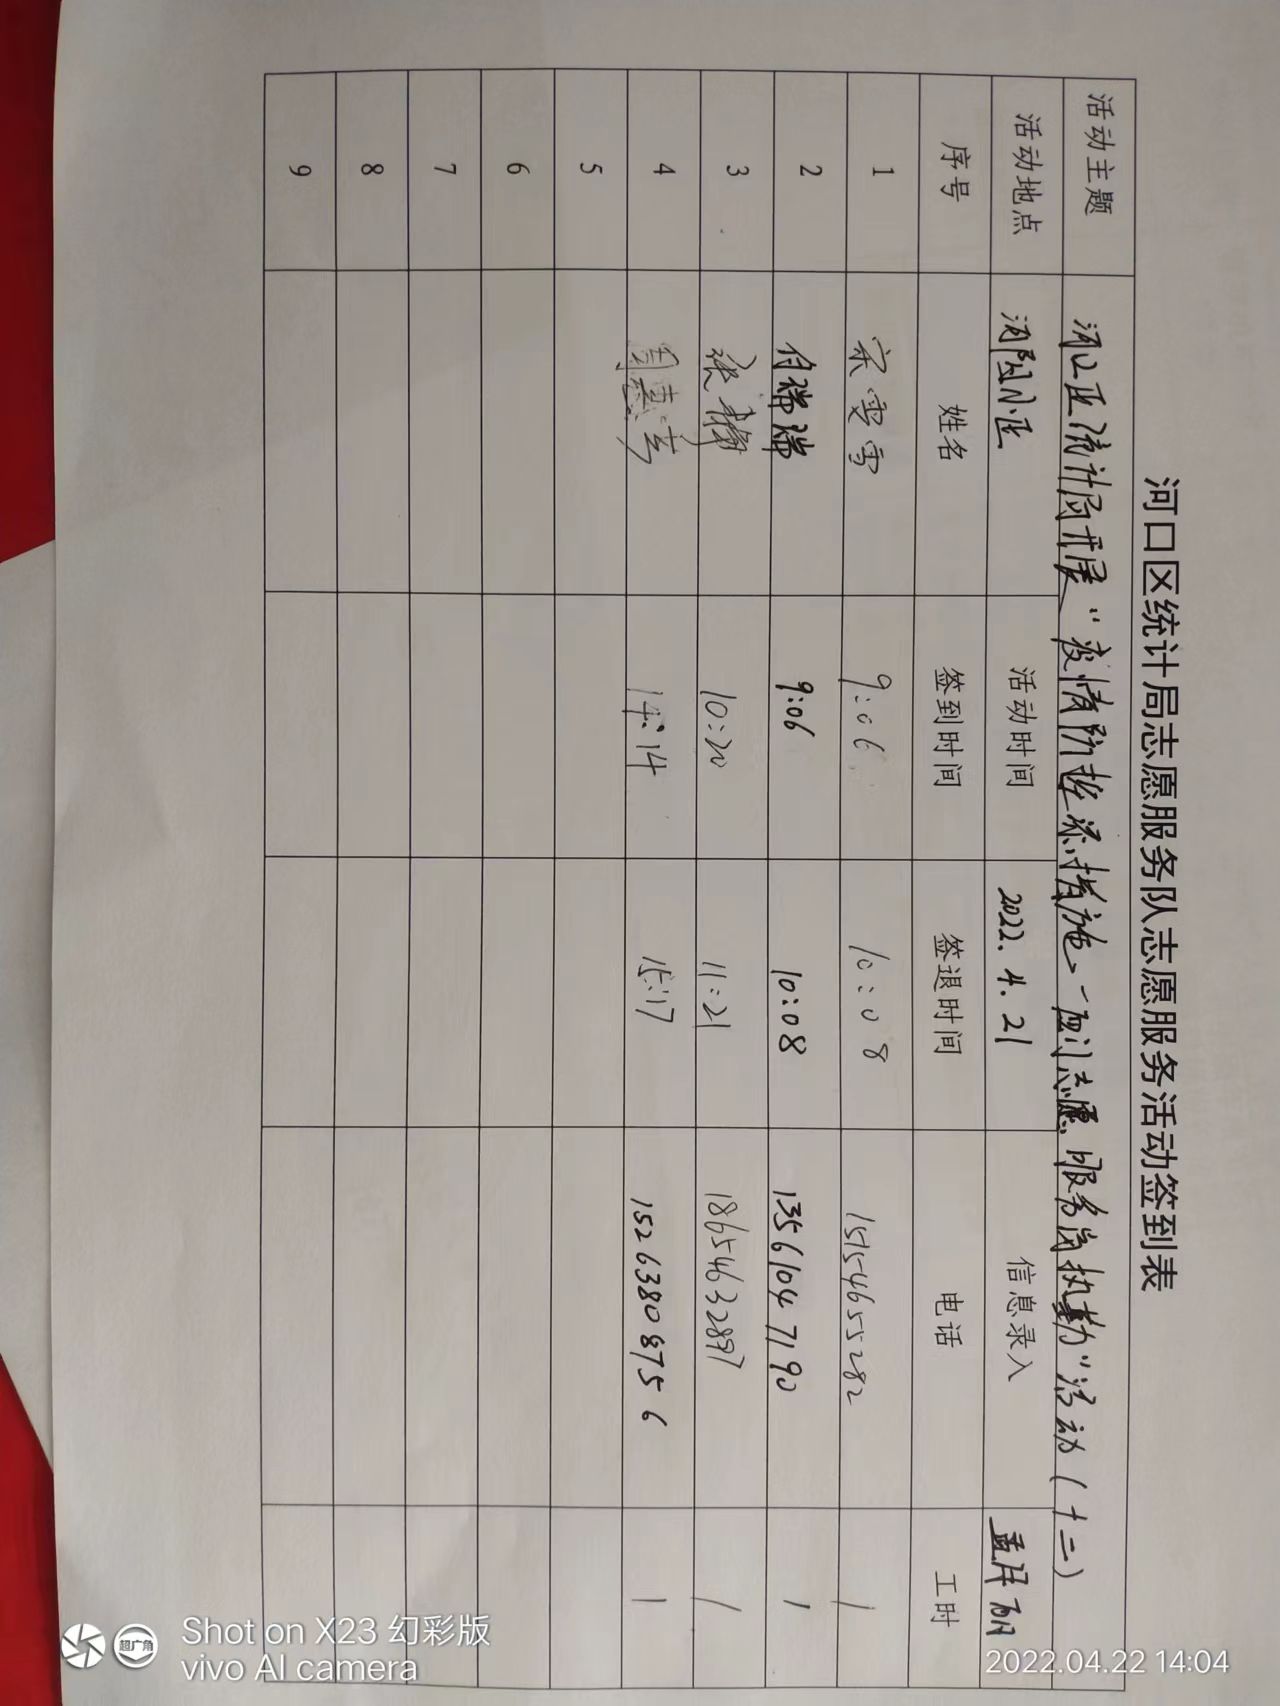 河口区统计局志愿服务队志愿服务活动签到表
活动主题 河口区统计局开展“疫情防控添措施、一面门志愿服务岗执勤”活动(十二)
活动地点 消防小区 活动时间 2022.4.21 信息录入 孟祥丽
序号 姓名 签到时间 签退时间 电话 工时
1 宋雪雪 9:06 10:08 15154655282 1
2 付瑞瑞 9:06 10:08 13561047190 1
3 张 10:20 11:21 18654632897 1
4 14:14 15:17 15263808756 1
5
6
7
8
9
超广角
Shot on X23 幻彩版
vivo AI camera
2022.04.22 14:04